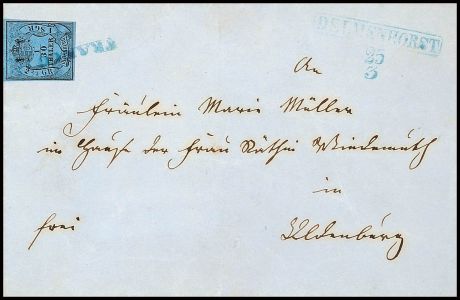 1/30
THALER
FRANCO
DELMENHORST
25/3
An
Fräulein Marie Müller
im Hause der Frau Räthin Wiedemuth
in
frei
Oldenburg